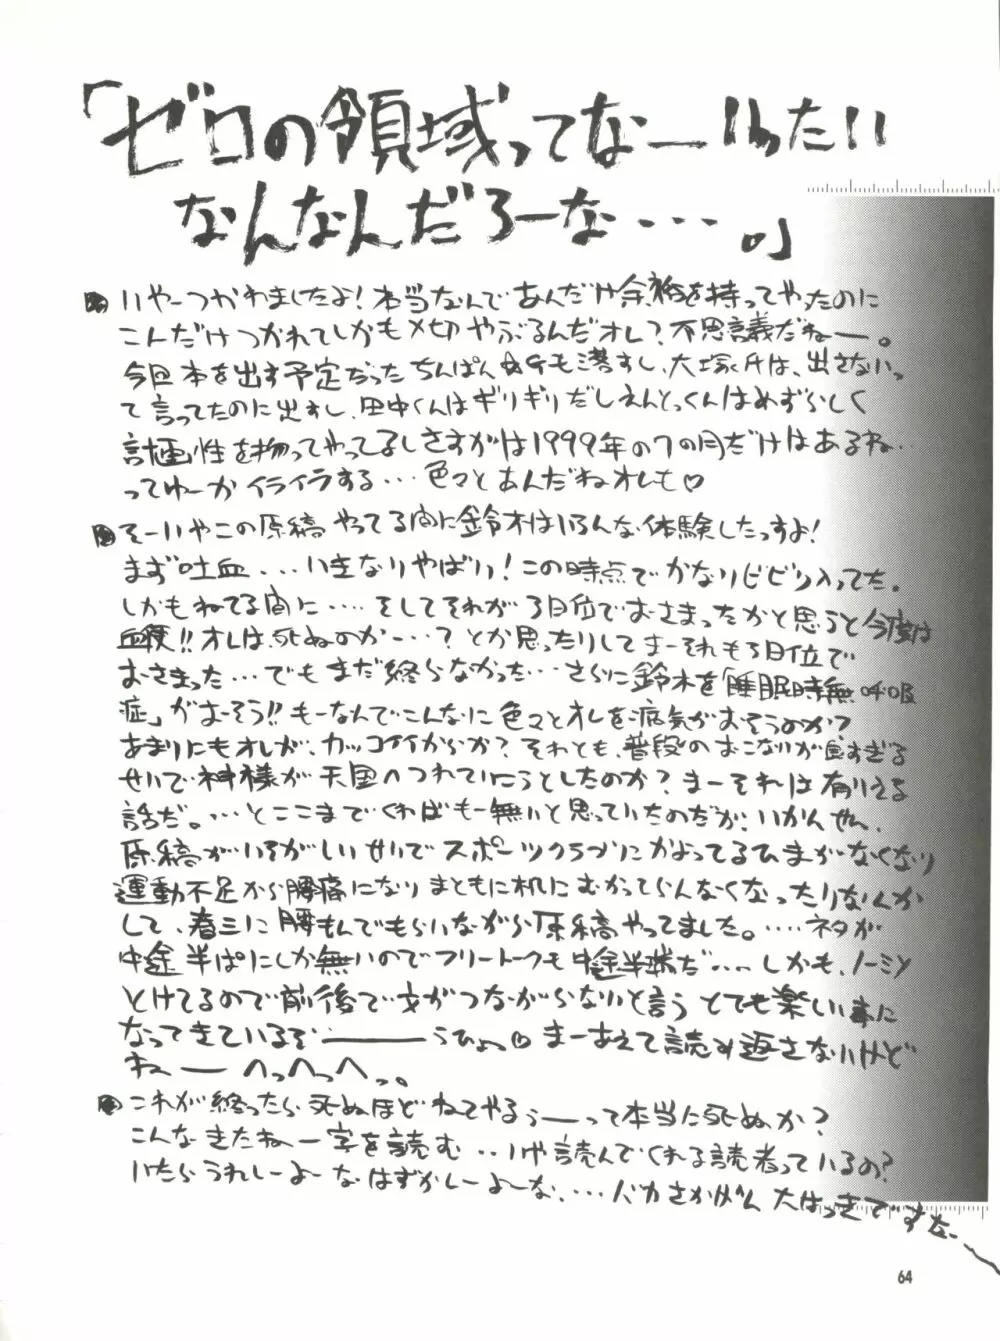 「ゼロの領域ってなーいったい
なんなんだろーな・・・。」
いやーつかれましたよ!本当なんであんだけ余裕を持ってやったのに
こんだけつかれてしかも〆切やぶるんだオレ?不思議だねー。
今回本を出す予定だったちんぱん☆Gも落すし、大塚氏は、出さないっ
て言ってたのに出すし、田中くんはギリギリだしえんとっくんはめずらしく
計画性を持ってやってるしさすがは1999年の7の月だけはあるね…
ってゆーかイライラする…色々とあんだねオレも♡
そーいやこの原稿やってる間に鈴木はいろんな体験したっすよ!
まず吐血...いきなりやばい!この時点でかなりビビり入ってた。
しかもねてる間に....そしてそれが3日位でおさまったかと思うと今度は
血便!!オレは死ぬのか-…?とか思ったりしてまーそれも3日位で
おさまった…でもまだ終らなかった…さらに鈴木を「睡眠時無呼吸
症」がおそう!!もーなんでこんなに色々とオレを病気がおそうのか?
あまりにもオレが、カッコイイからか?それとも、普段のおこないが良すぎる
せいで神様が天国へつれていこうとしたのか?まーそれは有りえる
話だ。…とここまでくればもー無いと思っていたのだが、いかんせん、
原稿がいそがしいせいでスポーツクラブにかよってるひまがなくなり
運動不足から腰痛になりまともに机にむかってらんなくなったりなんか
して、春三に腰もんでもらいながら原稿やってました。....ネタが
中途半ぱにしか無いのでフリートークも中途半端だ....しかも、ノーミソ
とけてるので前後で文がつながらないと言うとても楽しい事に
なってきているぞ――うひょっ♡まーあえて読み返さないけど
ねーーへっへっへっ。
これが終ったら死ぬほどねてやるぅーって本当に死ぬか?
こんなきたねー字を読む..いや読んでくれる読者っているの?
いたらうれしーよーなはずかしーよーな....バカさかげん大はっきですなー
64